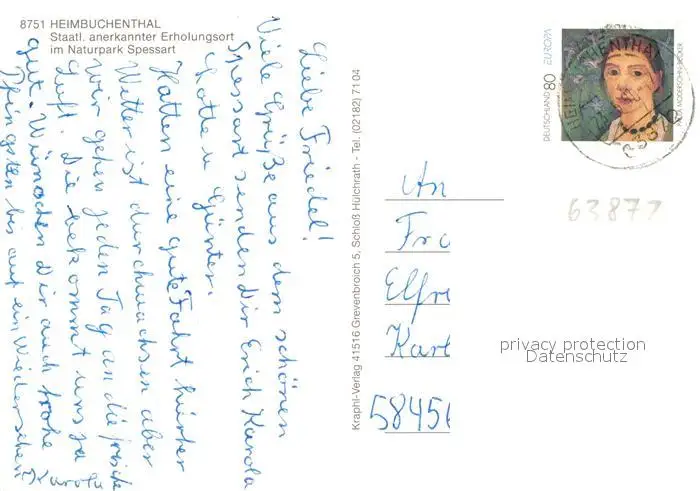 8751 HEIMBUCHENTHAL
Staatl. anerkannter Erholungsort
im Naturpark Spessart
Liebe Friedel!
Viele Grüße aus dem schönen
Spessart senden Dir Erich Karola
Lotte u Günter.
Hatten eine gute Fahrt hierher
Wetter ist durchwachsen aber
wir gehen jeden Tag an die frische
Luft. Die bekommt uns ja
gut. Wünschen Dir auch frohe
Pfingsten bis auf ein Wiedersehen
Karola
Kraphl-Verlag 41516 Grevenbroich 5, Schloß Hülchrath - Tel. (02182) 71 04
DEUTSCHLAND 80
EUROPA
PAULA MODERSOHN-BECKER
An
Fra
Elfre
Karl
58456
63872
privacy protection
Datenschutz